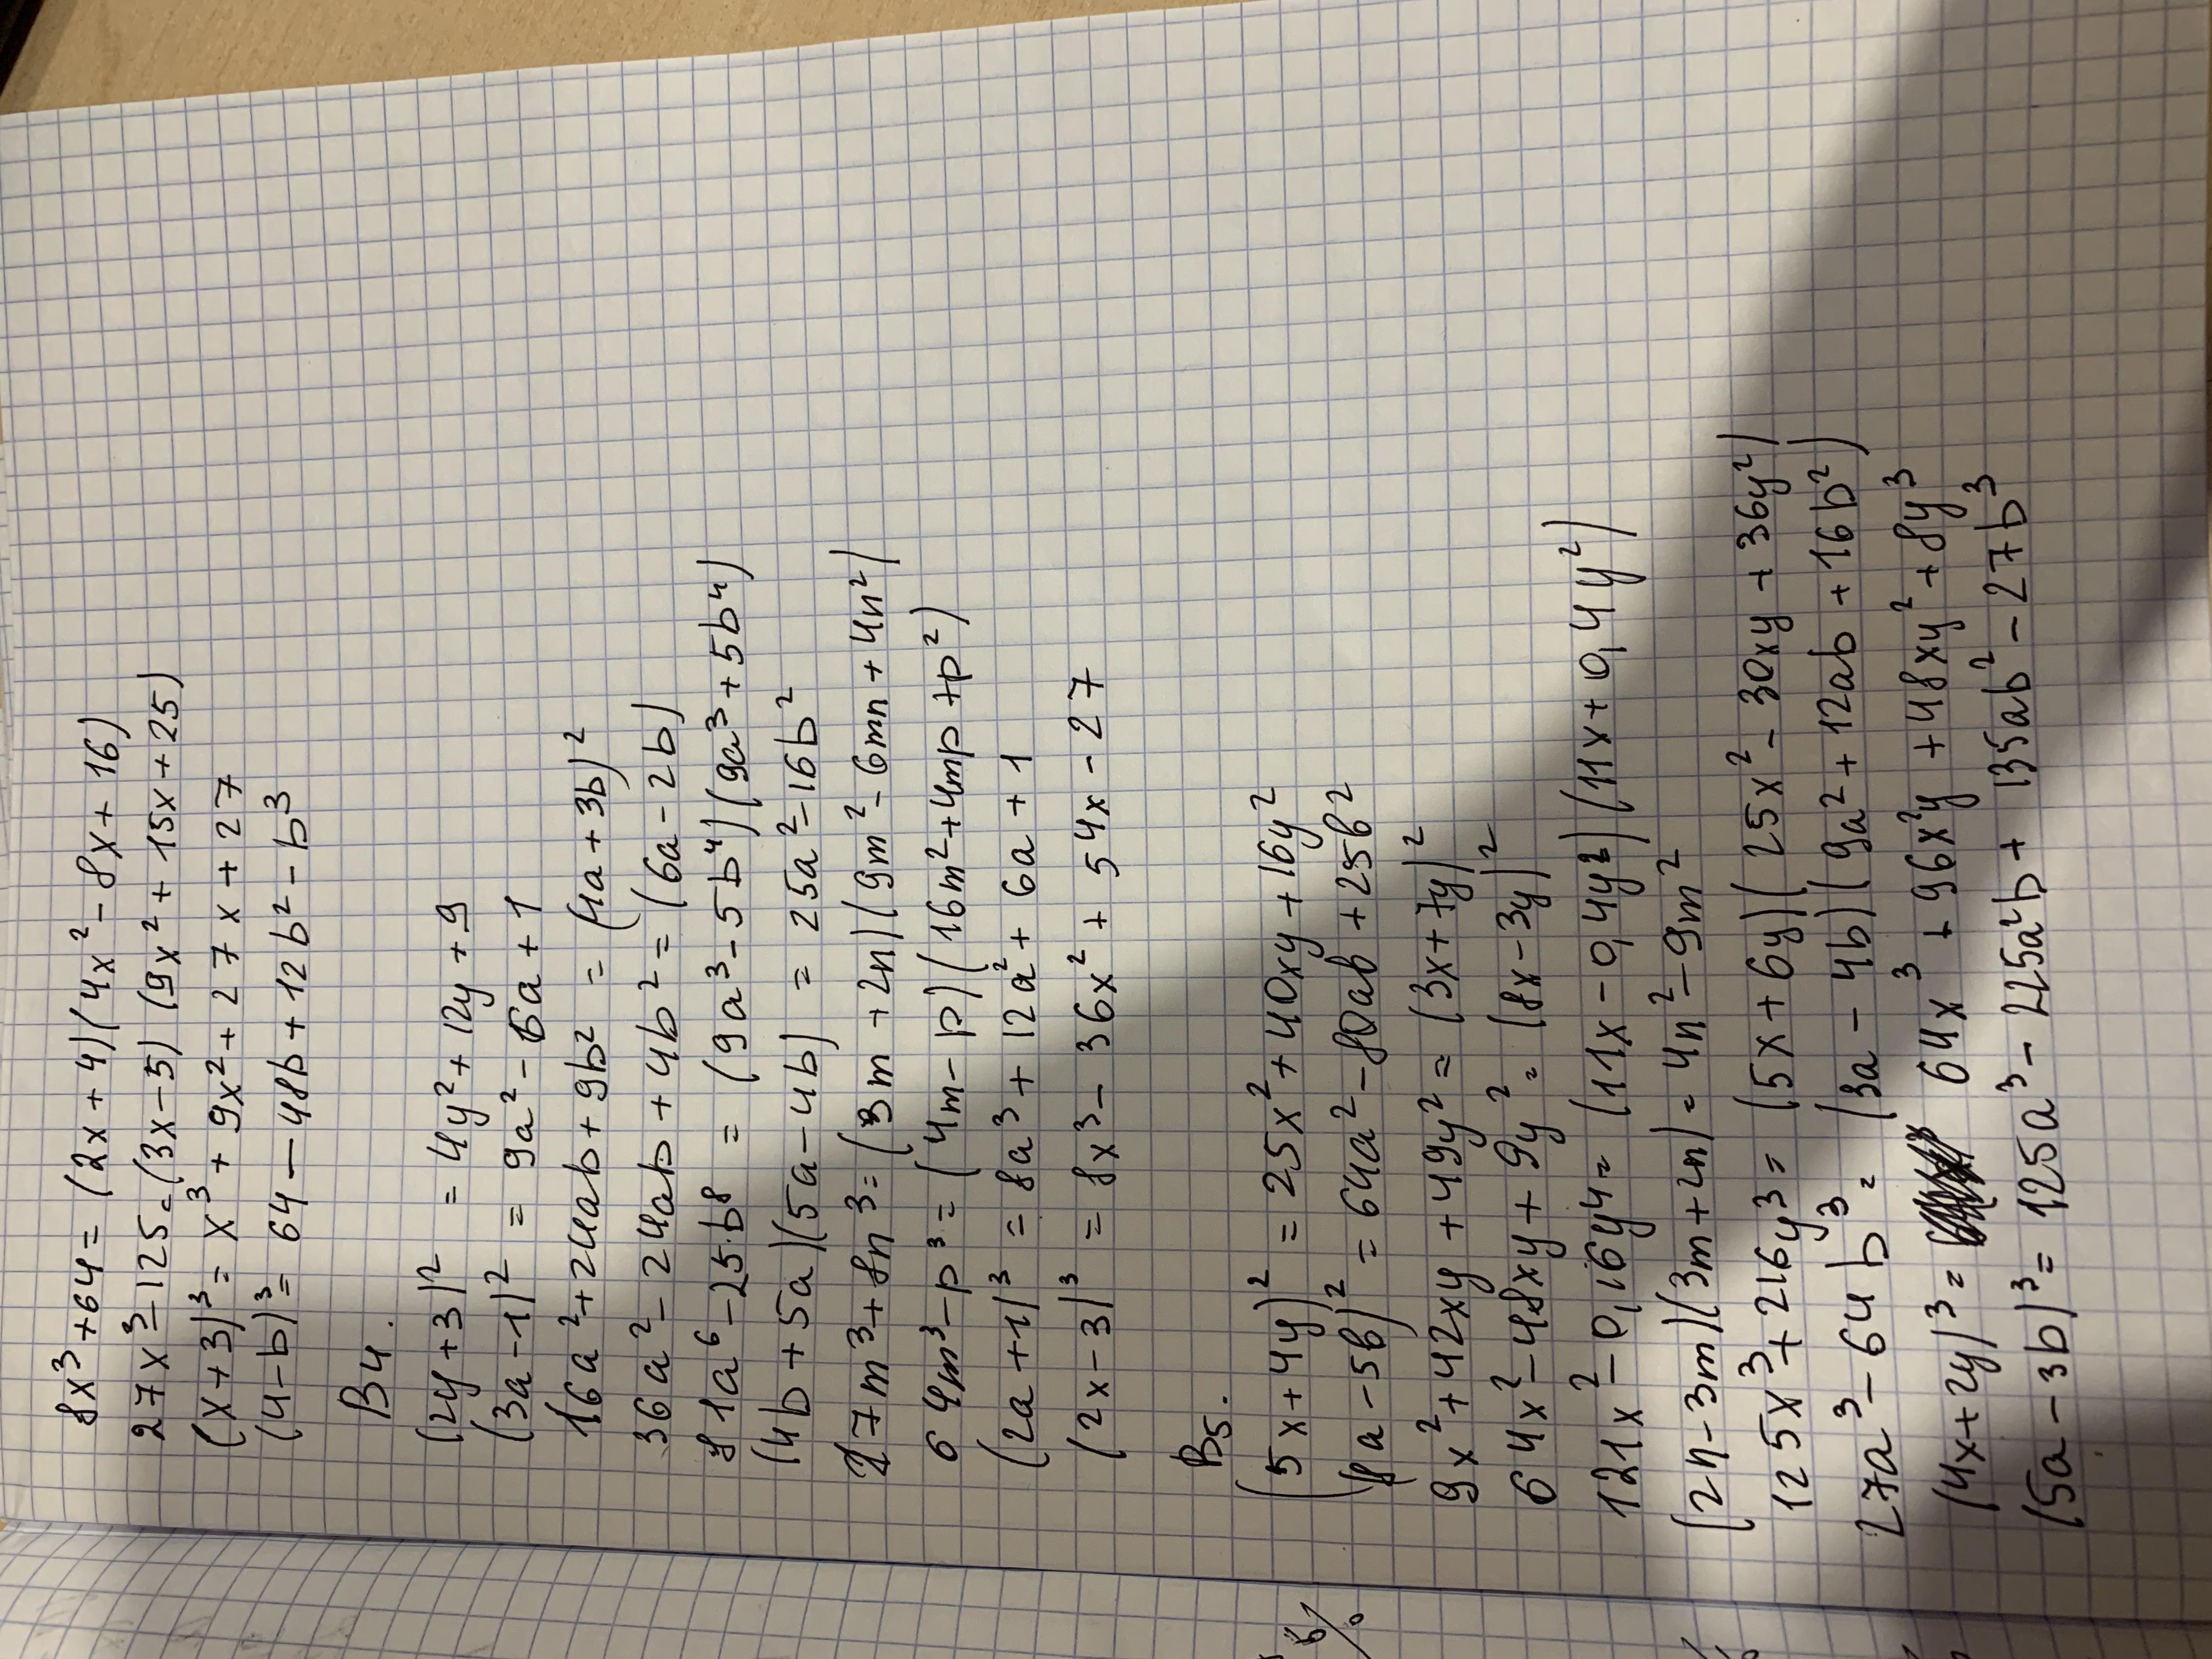 8x³+64=(2x+4)(4x²-8x+16)
27x³-125=(3x-5)(9x²+15x+25)
(x+3)³=x³+9x²+27x+27
(4-b)³=64-48b+12b²-b³
B4.
(2y+3)²=4y²+12y+9
(3a-1)²=9a²-6a+1
16a²+24ab+9b²=(4a+3b)²
36a²-24ab+4b²=(6a-2b)
81a⁶-25·b⁸=(9a³-5b⁴)(9a³+5b⁴)
(4b+5a)(5a-4b)=25a²-16b²
27m³+8n³=(3m+2n)(9m²-6mn+4n²)
64m³-p³=(4m-p)(16m²+4mp+p²)
(2a+1)³=8a³+12a²+6a+1
(2x-3)³=8x³-36x²+54x-27
B5.
(5x+4y)²=25x²+40xy+16y²
(8a-5b)²=64a²-80ab+25b²
9x²+42xy+49y²=(3x+7y)²
64x²-48xy+9y²=(8x-3y)²
121x²-0,16y⁴=(11x-0,4y²)(11x+0,4y²)
(2n-3m)(3m+2n)=4n²-9m²
125x³+216y³=(5x+6y)(25x²-30xy+36y²)
27a³-64b³=(3a-4b)(9a²+12ab+16b²)
(4x+2y)³=64x³+96x²y+48xy²+8y³
(5a-3b)³=125a³-225a²b+135ab²-27b³